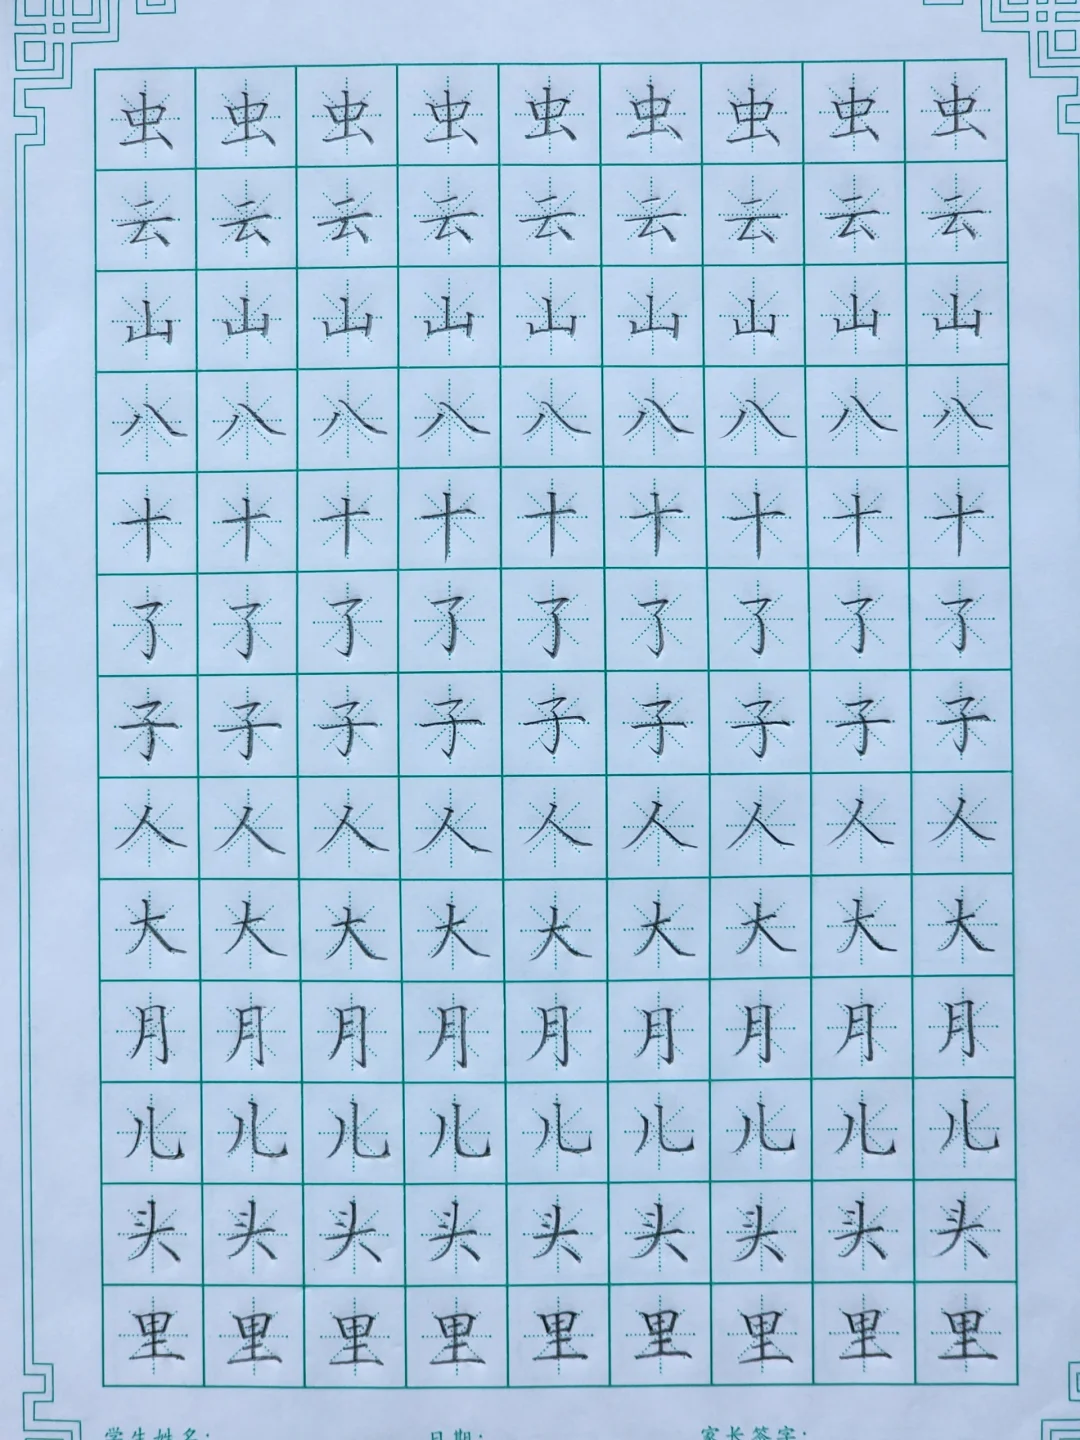 虫虫虫虫虫虫虫虫虫
云云云云云云云云云
山山山山山山山山山
八八八八八八八八八
十十十十十十十十十
了了了了了了了了了
子子子子子子子子子
人人人人人人人人人
大大大大大大大大大
月月月月月月月月月
儿儿儿儿儿儿儿儿儿
头头头头头头头头头
里里里里里里里里里
学生姓名: 日期: 家长签字: